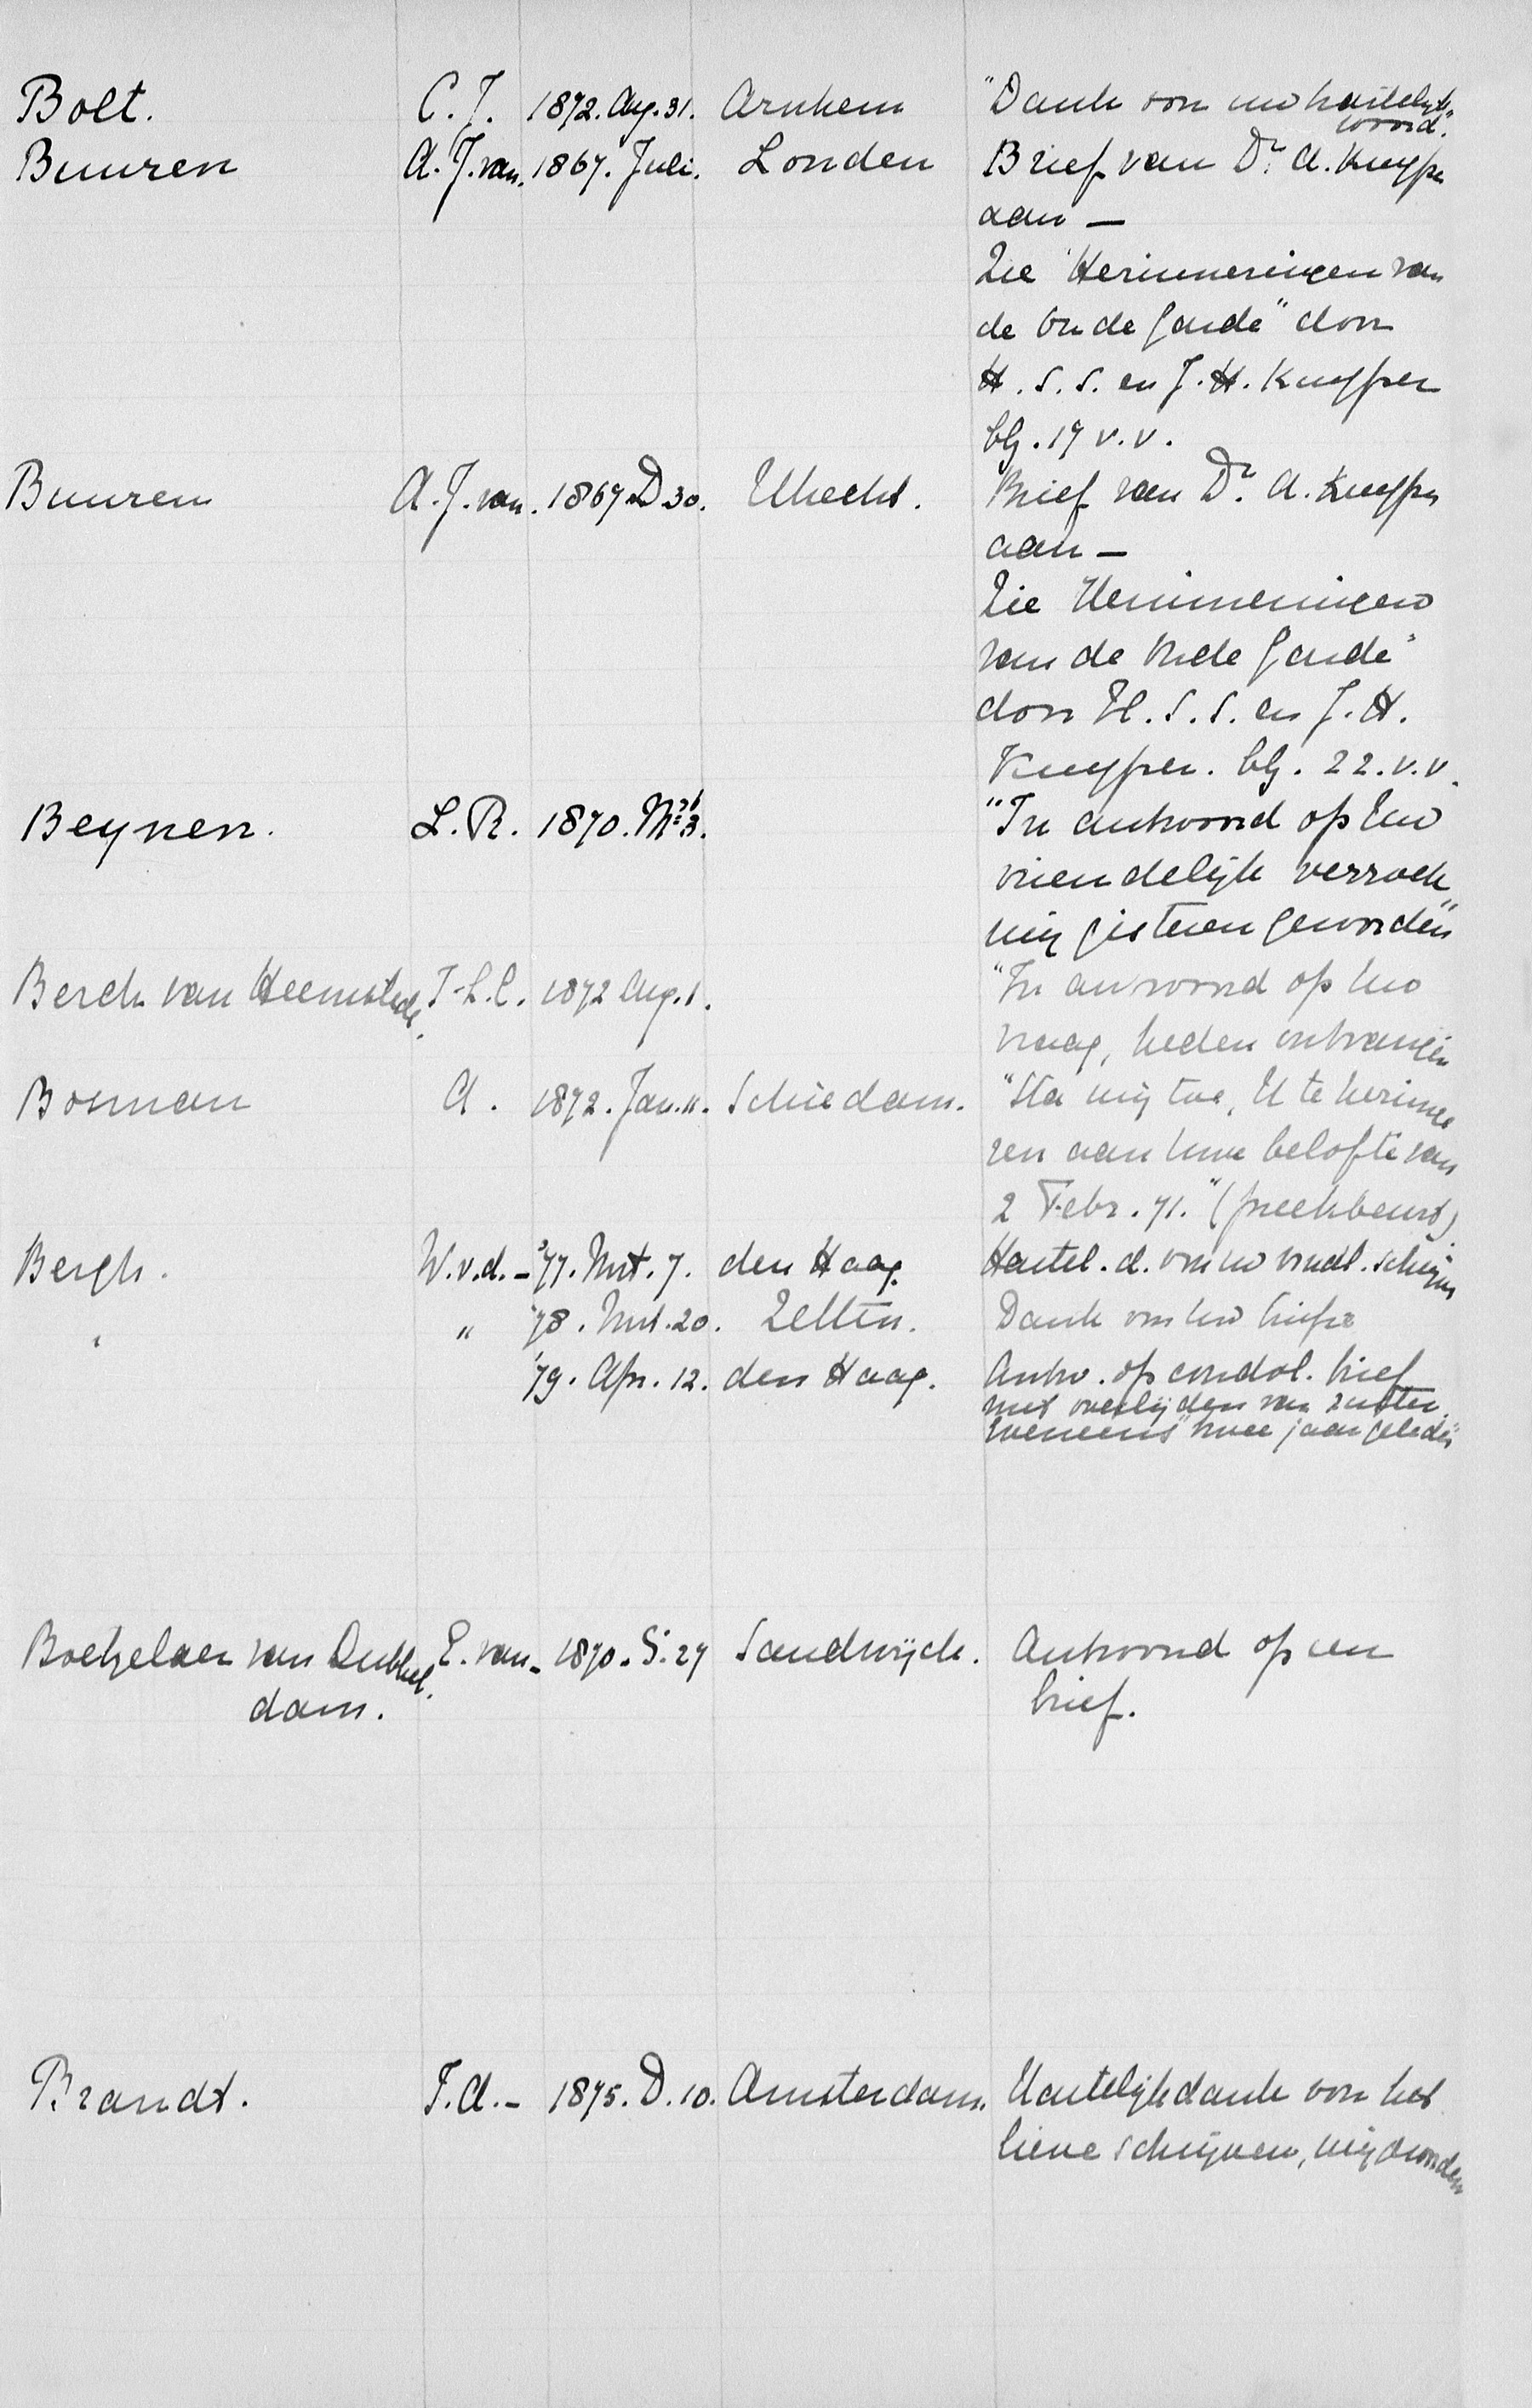 Bolt. C. J. 1872. Aug. 31. Arnhem "Dank voor uw hartelijk
woord".
Buuren A. J. van. 1867. Juli. Londen Brief van Dr. A. Kuyper
aan —
Zie "Herinneringen van
de Oude Garde" door
H. S. S. en J. H. Kuyper
blz. 19 v.v.
Buuren A. J. van. 1867 D 30. Utrecht. Brief van Dr. A. Kuyper
aan —
Zie Herinneringen
van de Oude Garde"
door H. S. S. en J. H.
Kuyper. blz. 22. v.v.
Beynen. L. R. 1870. "In antwoord op Uw
vriendelijk verzoek
mij gisteren geworden"
Berch van Heemstede. I. L. C. 1872 Aug. 1. "In antwoord op Uw
vraag, heden ontvangen
Bosman A. 1872. Jan. 11. Schiedam. "Sta mij toe, U te herinne
ren aan Uwe belofte van
2 Febr. 71." (preekbeurt).
Bergh. W. v. d. - '77. Mrt. 7. den Haag. Hartel. d. voor uw vrndl. schrijven
" " '78. Mrt. 20. Zetten. Dank voor Uw briefje
'79. Apr. 12. den Haag. Antw. op condol. brief
met overlijden van zuster.
Eveneens "twee jaar geleden"
Boetzelaer van Dubbel. E. van - 1870. S. 27 Sandwijck. Antwoord op een
dam. brief.
Brandt. F. A. - 1875. D. 10. Amsterdam. Hartelijk dank voor het
lieve schrijven, mij